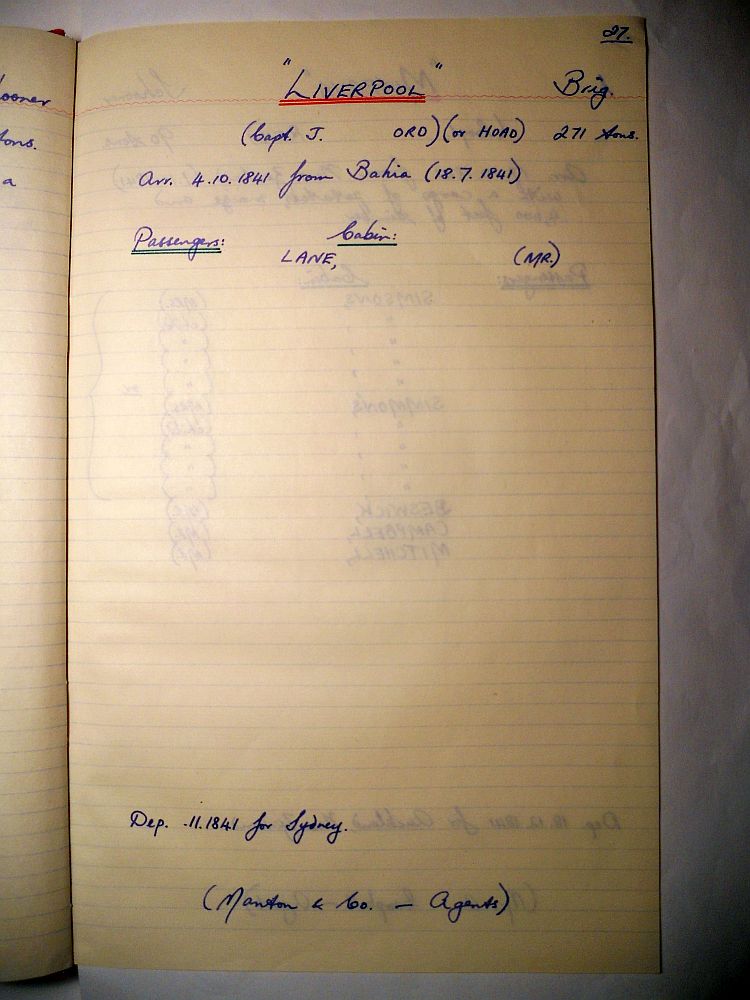 ooner
tons.
a
27.
"LIVERPOOL" Brig.
(Capt. J. ORD) (or HOAD) 271 tons.
Arr. 4.10.1841 from Bahia (18.7.1841)
Passengers: Cabin:
LANE, (MR.)
Dep. .11.1841 for Sydney.
(Manton & Co. — Agents)